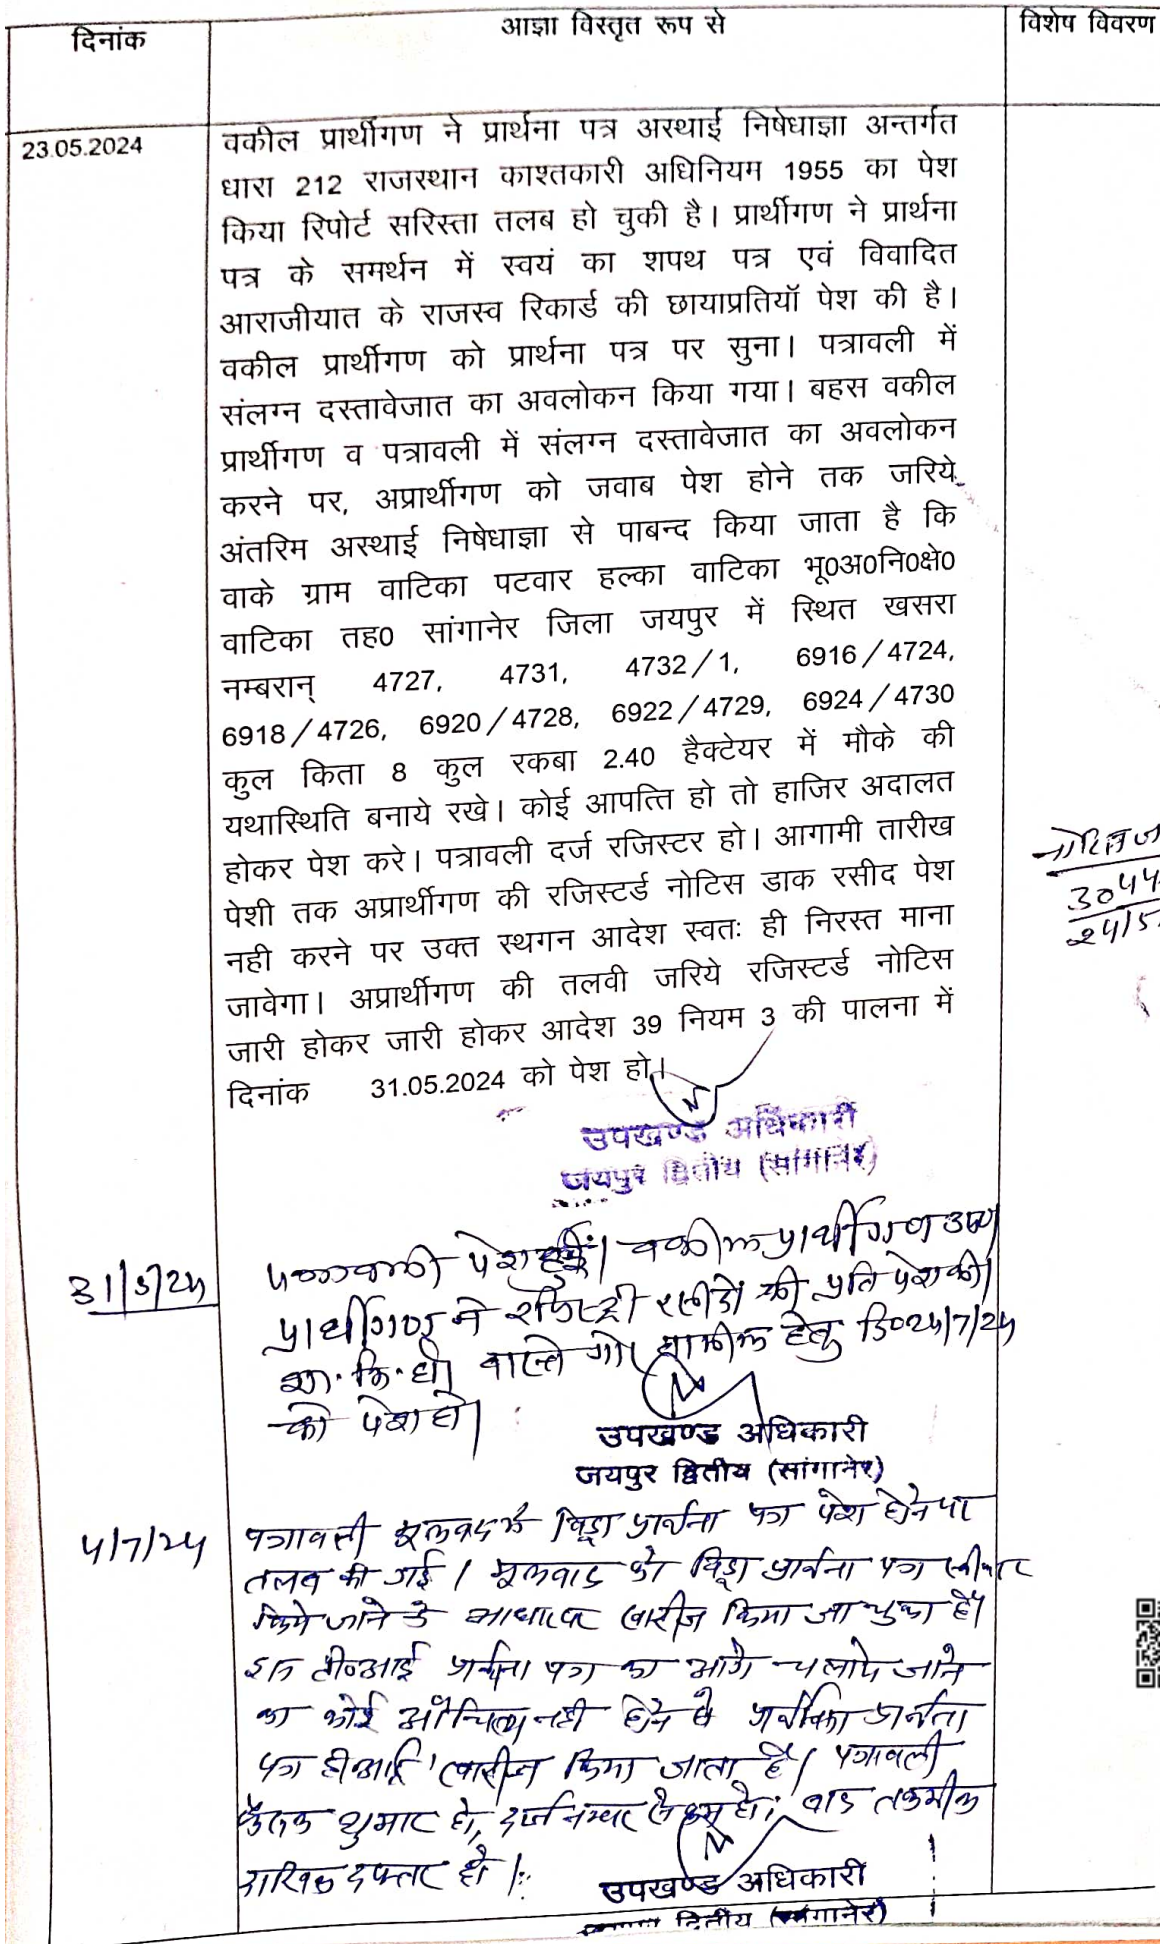 दिनांक
आज्ञा विस्तृत रूप से
विशेष विवरण
23.05.2024
वकील प्रार्थीगण ने प्रार्थना पत्र अस्थाई निषेधाज्ञा अन्तर्गत
धारा 212 राजस्थान काश्तकारी अधिनियम 1955 का पेश
किया रिपोर्ट सरिस्ता तलब हो चुकी है। प्रार्थीगण ने प्रार्थना
पत्र के समर्थन में स्वयं का शपथ पत्र एवं विवादित
आराजीयात के राजस्व रिकार्ड की छायाप्रतियॉ पेश की है।
वकील प्रार्थीगण को प्रार्थना पत्र पर सुना। पत्रावली में
संलग्न दस्तावेजात का अवलोकन किया गया। बहस वकील
प्रार्थीगण व पत्रावली में संलग्न दस्तावेजात का अवलोकन
करने पर, अप्रार्थीगण को जवाब पेश होने तक जरिये
अंतरिम अस्थाई निषेधाज्ञा से पाबन्द किया जाता है कि
वाके ग्राम वाटिका पटवार हल्का वाटिका भू0अ0नि0क्षे0
वाटिका तह0 सांगानेर जिला जयपुर में स्थित खसरा
नम्बरान् 4727, 4731, 4732/1, 6916/4724,
6918/4726, 6920/4728, 6922/4729, 6924/4730
कुल किता 8 कुल रकबा 2.40 हैक्टेयर में मौके की
यथास्थिति बनाये रखे। कोई आपत्ति हो तो हाजिर अदालत
होकर पेश करे। पत्रावली दर्ज रजिस्टर हो। आगामी तारीख
पेशी तक अप्रार्थीगण की रजिस्टर्ड नोटिस डाक रसीद पेश
नही करने पर उक्त स्थगन आदेश स्वतः ही निरस्त माना
जावेगा। अप्रार्थीगण की तलवी जरिये रजिस्टर्ड नोटिस
जारी होकर जारी होकर आदेश 39 नियम 3 की पालना में
दिनांक 31.05.2024 को पेश हो।
उपखण्ड अधिकारी
जयपुर द्वितीय (सांगानेर)
31/5/24
पत्रावली पेश हुई। वकील प्रार्थीगण उप।
प्रार्थीगण ने रजिस्ट्री रसीदों की प्रति पेश की।
वास्ते तामील हेतु दि० 24/7/24
को पेश हो।
उपखण्ड अधिकारी
जयपुर द्वितीय (सांगानेर)
4/7/24
पत्रावली मूलवाद के विड्रा प्रार्थना पत्र पेश होने पर
तलब की गई। मूलवाद को विड्रा प्रार्थना पत्र स्वीकार
किये जाने के आधार पर खारीज किया जा चुका है।
अतः टी०आई प्रार्थना पत्र का आगे चलाये जाने
का कोई औचित्य नही होने से प्रार्थना
पत्र टीआई खारीज किया जाता है। पत्रावली
फैसल शुमार हो, दर्ज नम्बर से कम हो, बाद तकमील
दाखिल दफ्तर हो।
उपखण्ड अधिकारी
द्वितीय (सांगानेर)